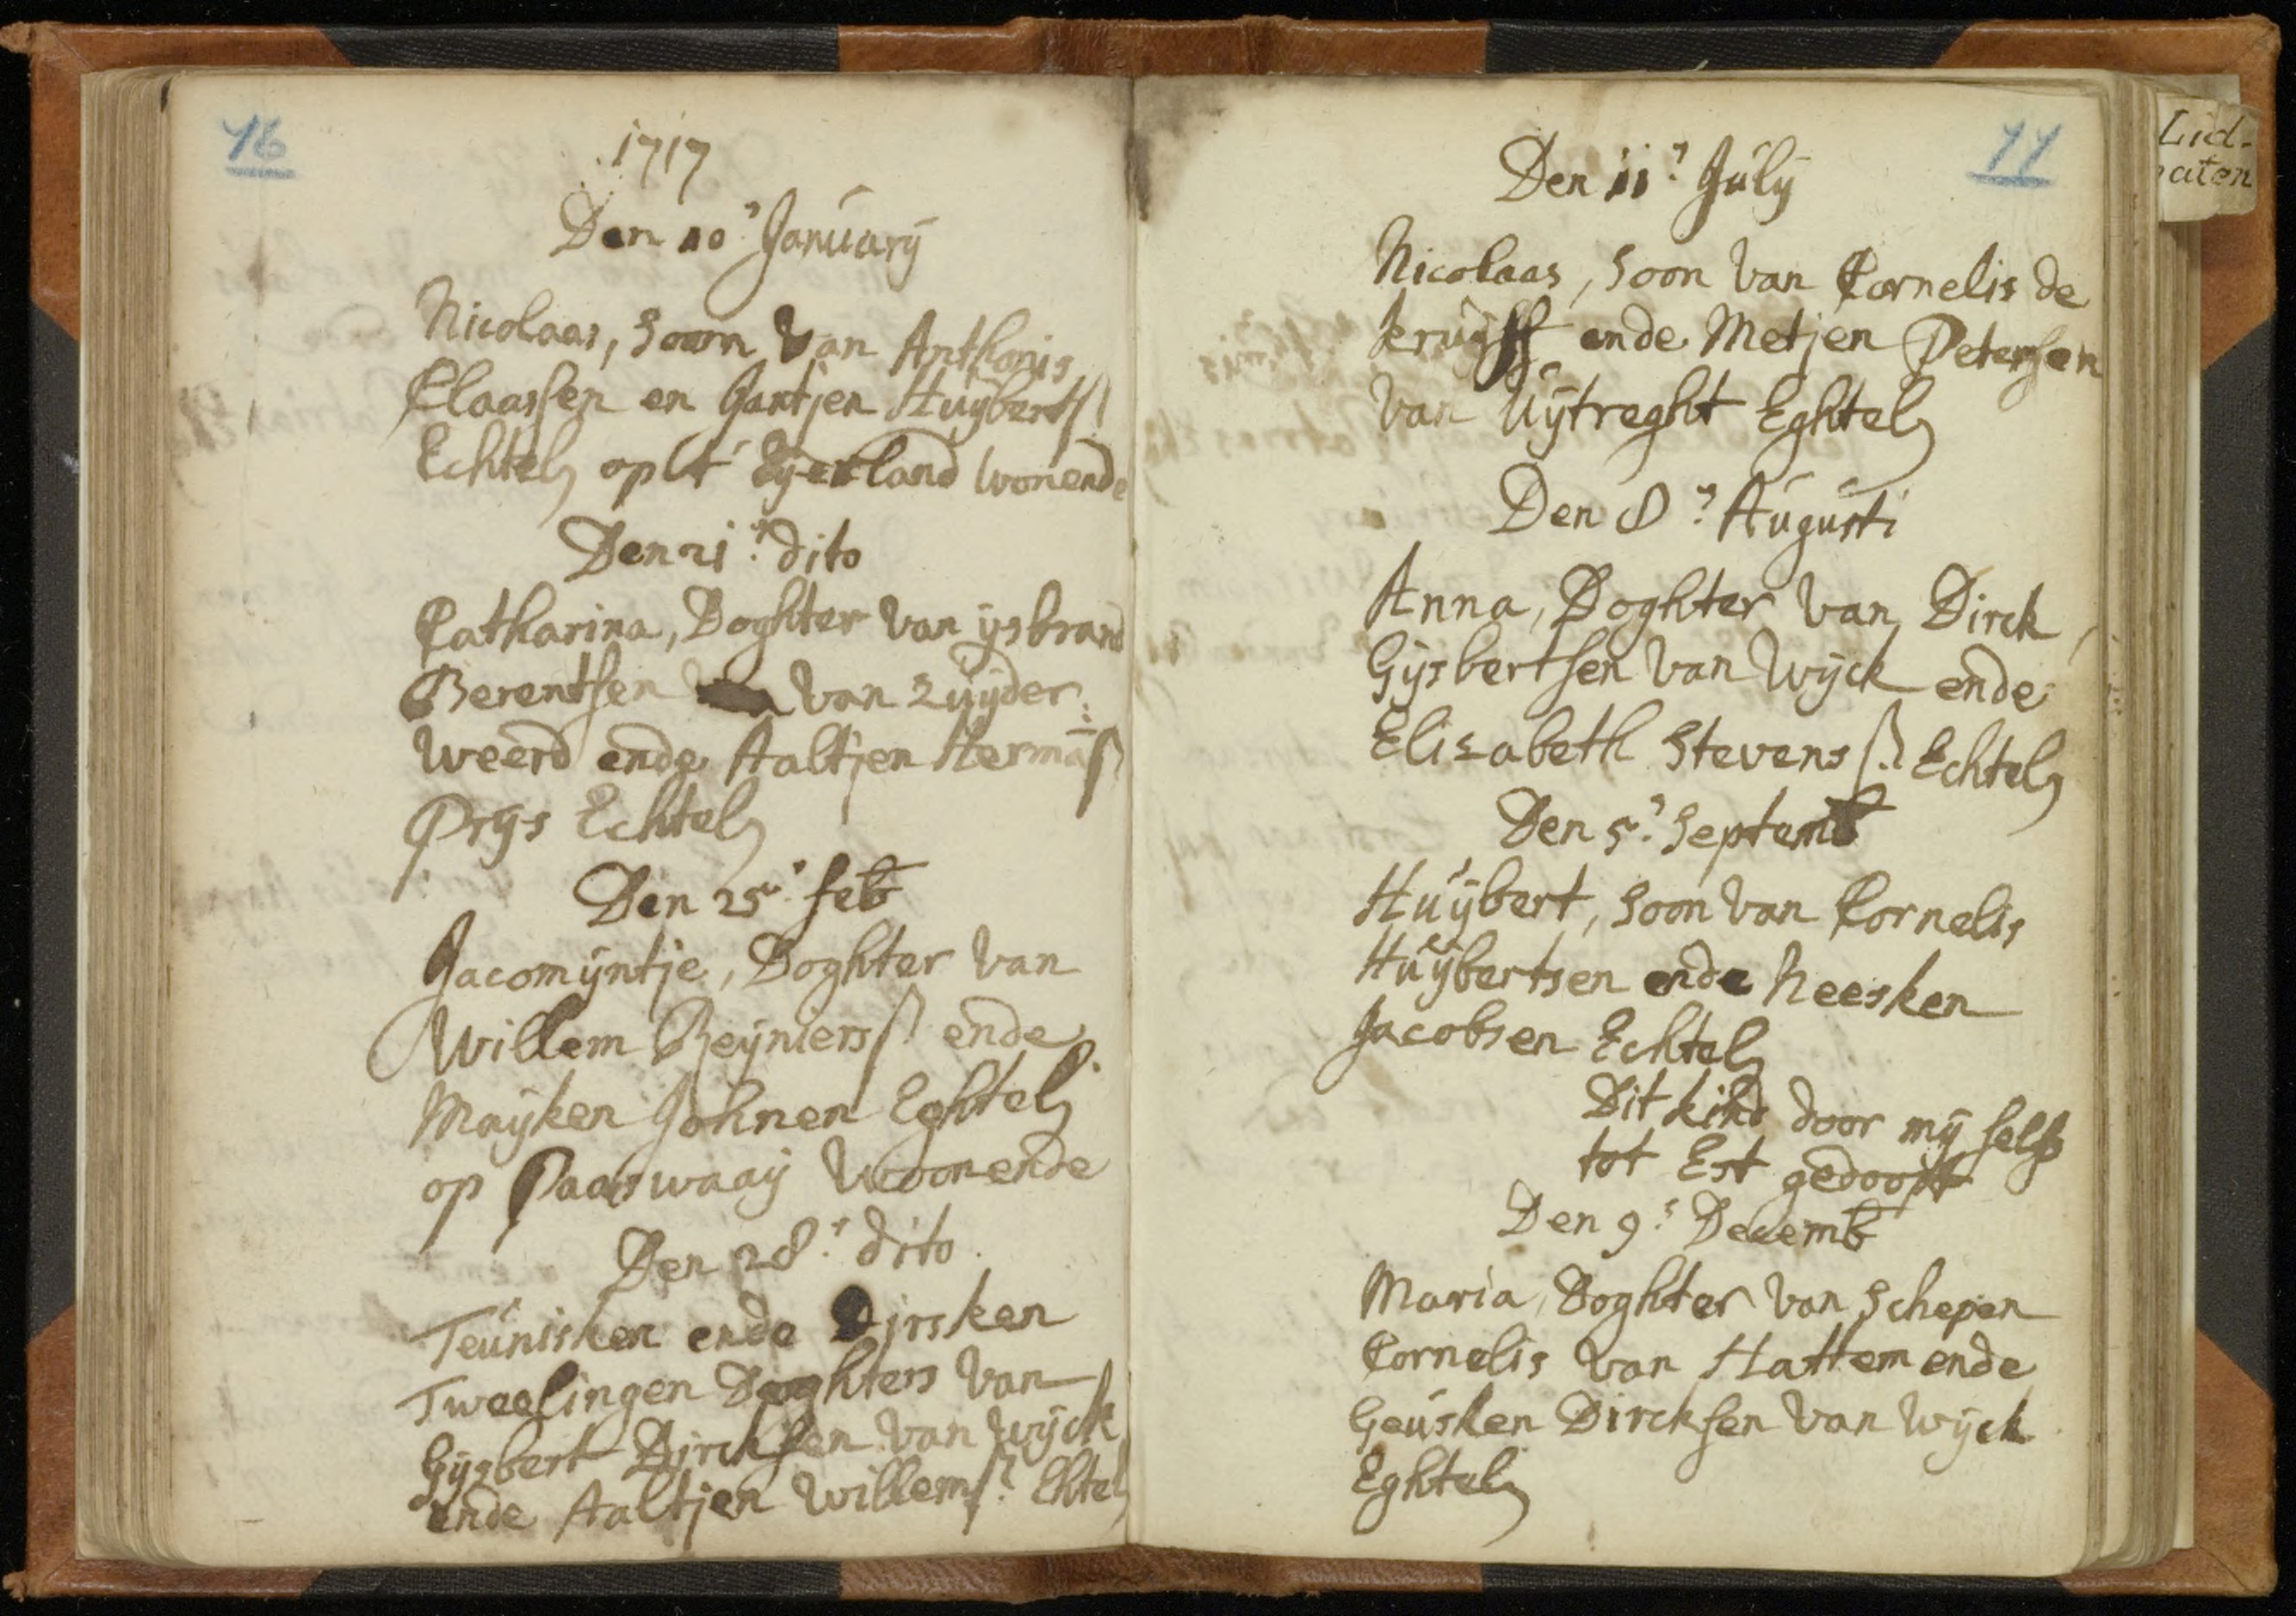 76
1717
Den 10: January
Nicolaas, Soon Van Anthonis
Claassen en Gantjen Huÿberts
Echtel, op 't Eÿerland wonende
Den 21: dito
Catharina, Doghter van ÿsbrand
Berentsen van Zuÿder:
weerd ende Aaltjen Hermās
Prÿs Echtel,
Den 25: feb
Jacomÿntje, Doghter van
Willem Reÿnierss ende
Maÿken Johnen Eghtel,
op Paaswaaÿ Woonende
Den 28: dito
Teúnisken ende Dirsken
Tweelingen Doghters van
Gÿsbert Dircksen van Wÿck
ende Aaltjen Willems: Ehtel,
77
Lid-
maten
Den 11: Júlÿ
Nicolaas, Soon van Cornelis de
kruÿff ende Metjen Petersen
van Uÿtreght Eghtel,
Den 8: Augústi
Anna, Doghter van Dirck
Gÿsbertsen van Wÿck ende
Elisabeth Stevens s: Echtel,
Den 5: Septemb
Huÿbert, Soon van Cornelis
Huÿbertsen ende Neesken
Jacobsen Echtel,
Dit kind door mÿ self
tot Est gedoopt
Den 9: Decemb
Maria, Doghter van Schepen
Cornelis van Hattem ende
Geúsken Dircksen van Wÿck
Eghtel,